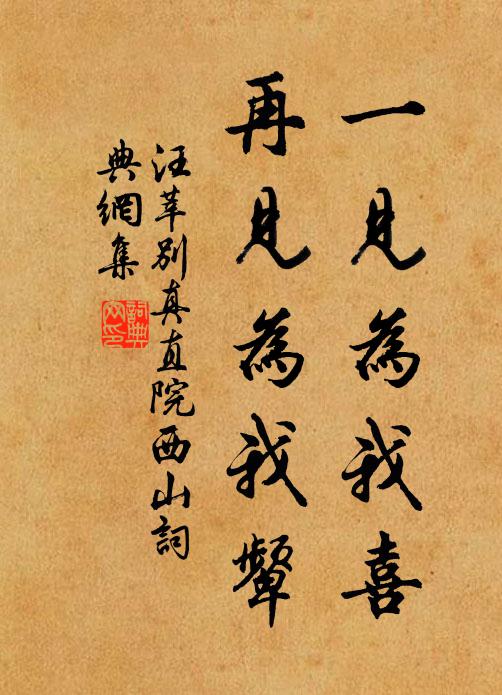 一見為我喜
再見為我顰
汪莘別真直院西山詞
典網集
詞典網印